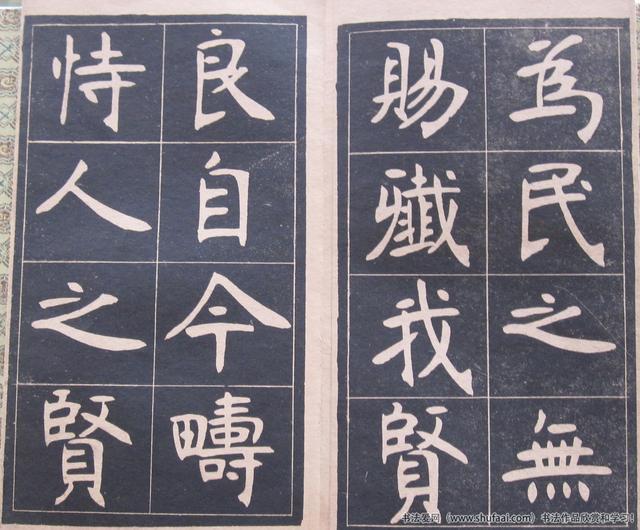 為民之無
賜殲我賢
良自今疇
恃人之賢
书法爱网（www.shufaai.com）书法作品欣赏和学习！